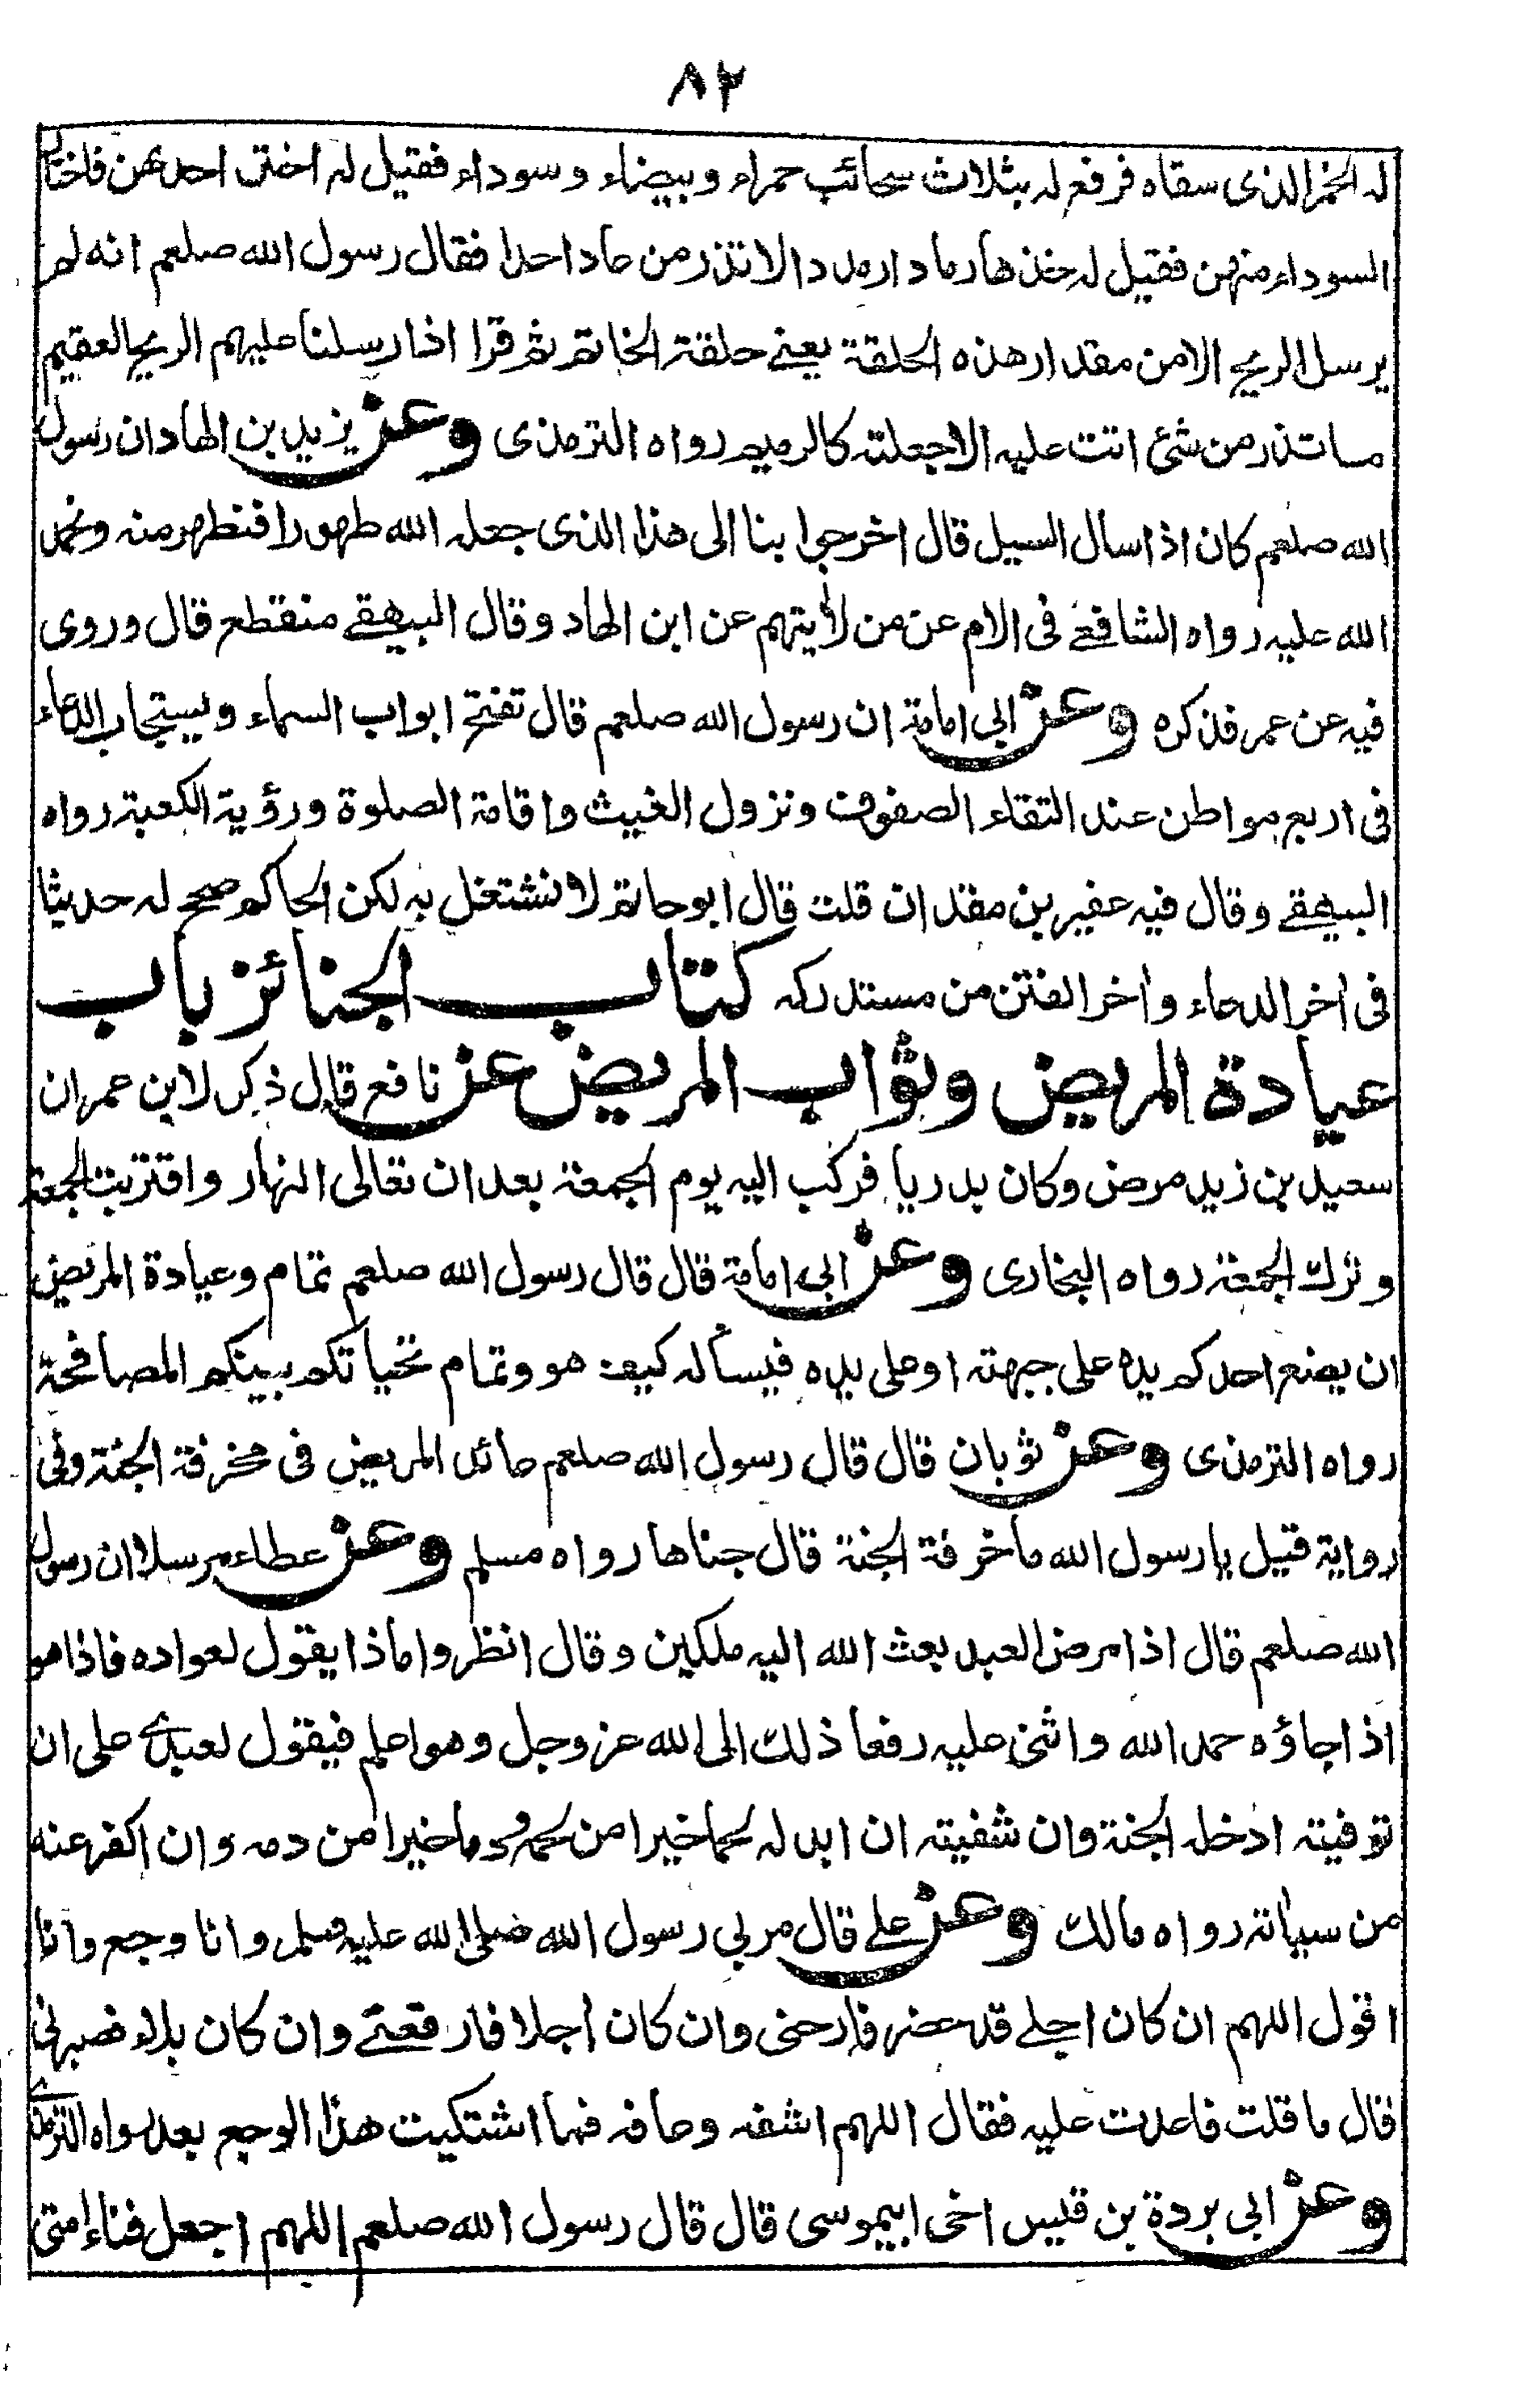 ٨٢
له الخمر الذى سقاه فرفع له بثلاث سحائب حمراء وبيضاء وسوداء فقيل له اختر احدهن فاختار
السوداء منهن فقيل له خذها رمادا رمددا لا تذر من عاد احدا فقال رسول الله صلعم انه لم
يرسل الريح الا من مقدار هذه الحلقة يعنے حلقة الخاتم ثم قرا اذ ارسلنا عليهم الريح العقيم
ما تذر من شئ اتت عليه الا جعلته كالرميم رواه الترمذى وعن يزيد بن الهاد ان رسول
الله صلعم كان اذا سال السيل قال اخرجوا بنا الى هذا الذى جعله الله طهورا فنطهر منه ونحمد
الله عليه رواه الشافعے فى الام عن من لا يتهم عن ابن الهاد وقال البيهقے منقطع قال وروى
فيه عن عمر فذكره وعن ابى امامة ان رسول الله صلعم قال تفتح ابواب السماء ويستجاب الدعاء
فى اربع مواطن عند التقاء الصفوف ونزول الغيث واقامة الصلوة ورؤية الكعبة رواه
البيهقے وقال فيه عفير بن مقدان قلت قال ابو حاتم لا نشتغل به لكن الحاكم صحح له حديثا
فى اخر الدعاء واخر الفتن من مستدركه كتاب الجنائز باب
عيادة المريض وثواب المريض عن نافع قال ذكر لابن عمر ان
سعيد بن زيد مرض وكان بدريا فركب اليه يوم الجمعة بعد ان تعالى النهار واقتربت الجمعة
وترك الجمعة رواه البخارى وعن ابى امامة قال قال رسول الله صلعم تمام وعيادة المريض
ان يضع احدكم يده على جبهته او على يده فيسأله كيف هو وتمام تحياتكم بينكم المصافحة
رواه الترمذى وعن ثوبان قال قال رسول الله صلعم عائد المريض فى مخرفة الجنة وفى
رواية قيل يا رسول الله ما خرفة الجنة قال جناها رواه مسلم وعن عطاء مرسلا ان رسول
الله صلعم قال اذا مرض العبد بعث الله اليه ملكين وقال انظروا ماذا يقول لعواده فاذا هو
اذا جاؤه حمد الله واثنى عليه رفعا ذلك الى الله عز وجل وهو اعلم فيقول لعبدے على ان
توفيته ادخله الجنة وان شفيته ان ابدله لحما خيرا من لحمه ودما خيرا من دمه وان اكفر عنه
من سياته رواه مالك وعن علے قال مر بي رسول الله صلى الله عليه وسلم وانا وجع وانا
اقول اللهم ان كان اجلے قد حضر فارحنى وان كان اجلا فارفعنے وان كان بلاء فصبرنى
قال ما قلت فاعدت عليه فقال اللهم اشفه وعافه فما اشتكيت هذا الوجع بعد رواه الترمذے
وعن ابى بردة بن قيس اخى ابيموسى قال قال رسول الله صلعم اللهم اجعل فناء امتى